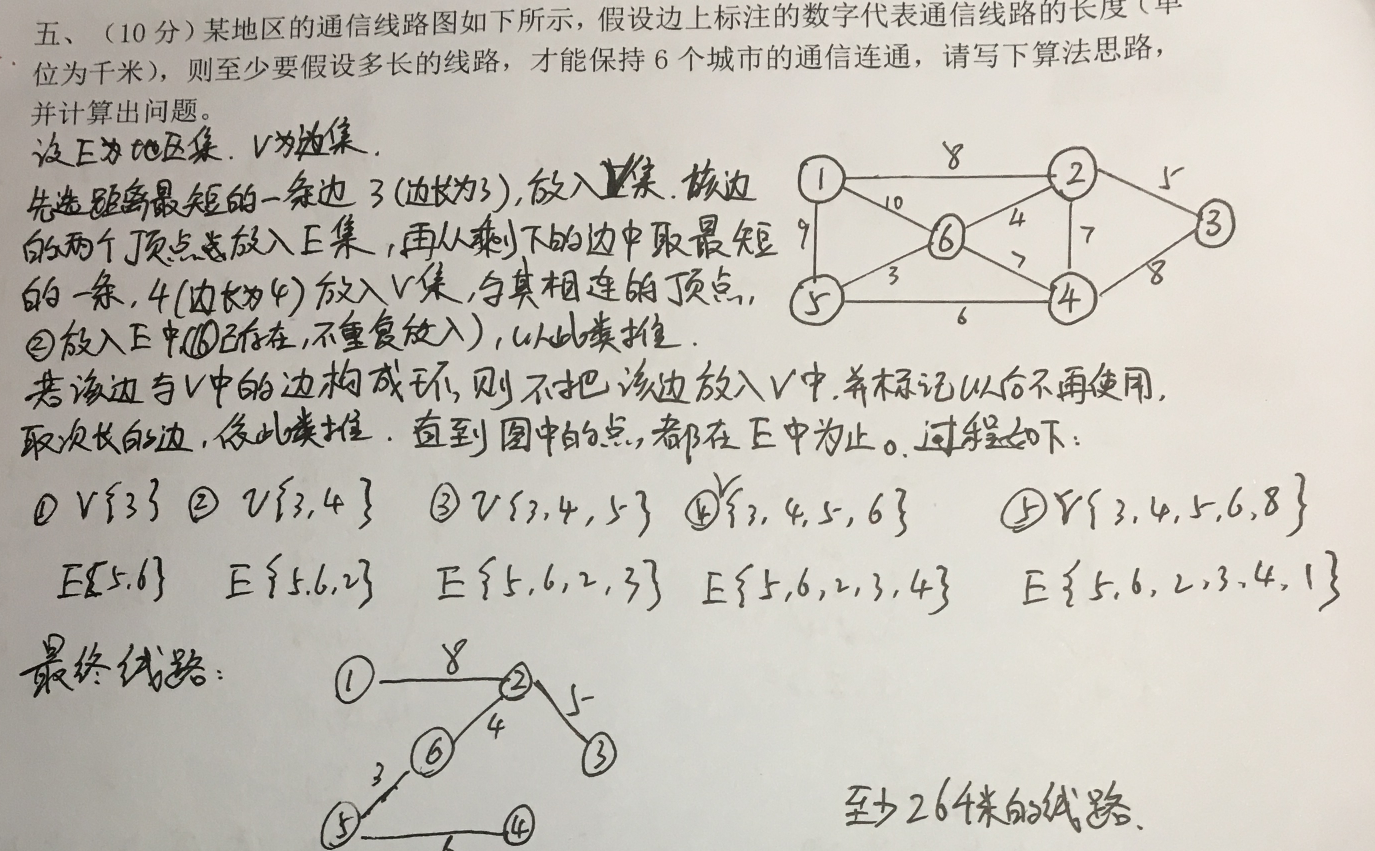 五、（10 分）某地区的通信线路图如下所示，假设边上标注的数字代表通信线路的长度（单
位为千米），则至少要假设多长的线路，才能保持 6 个城市的通信连通，请写下算法思路，
并计算出问题。
设E为地区集. V为边集.
先选距离最短的一条边 3 (边长为3), 放入V集. 该边
的两个顶点放入E集, 再从剩下的边中取最短
的一条, 4(边长为4) 放入V集, 与其相连的顶点,
②放入E中(⑥已存在, 不重复放入), 以此类推.
若该边与V中的边构成环, 则不把该边放入V中. 并标记以后不再使用,
取次长的边, 依此类推. 直到图中的点, 都在E中为止。过程如下:
1 8 2 5 3
10 4 7 8
9 6
3 7
5 6 4
① V{3} ② V{3, 4} ③ V{3, 4, 5} ④ V{3, 4, 5, 6} ⑤ V{3, 4, 5, 6, 8}
E{5, 6} E{5, 6, 2} E{5, 6, 2, 3} E{5, 6, 2, 3, 4} E{5, 6, 2, 3, 4, 1}
最终线路:
① 8 ② 5
4
⑥ ③
3
⑤ 6 ④
至少26千米的线路.